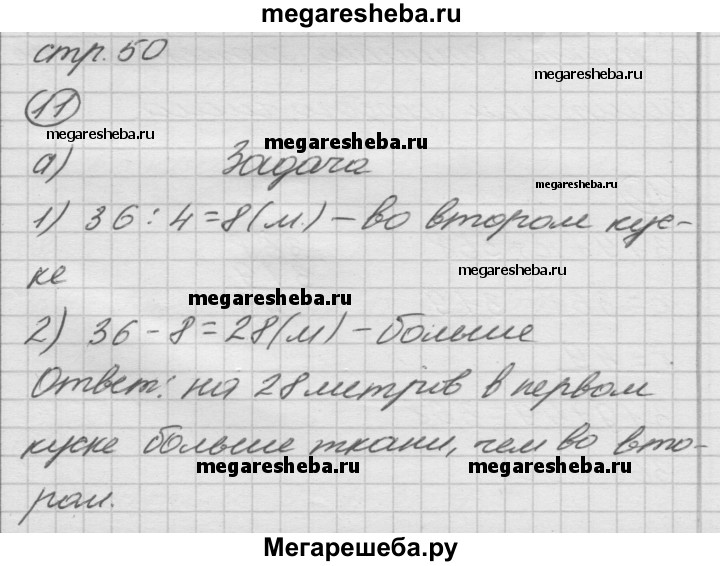 megaresheba.ru
стр. 50
megaresheba.ru
11
megaresheba.ru
megaresheba.ru
а) Задача
megaresheba.ru
1) 36 : 4 = 8 (м.) – во втором кус-
ке
megaresheba.ru
megaresheba.ru
2) 36 - 8 = 28 (м) – больше
Ответ: на 28 метров в первом
куске больше ткани, чем во вто-
megaresheba.ru megaresheba.ru
ром.
Мегарешеба.ру